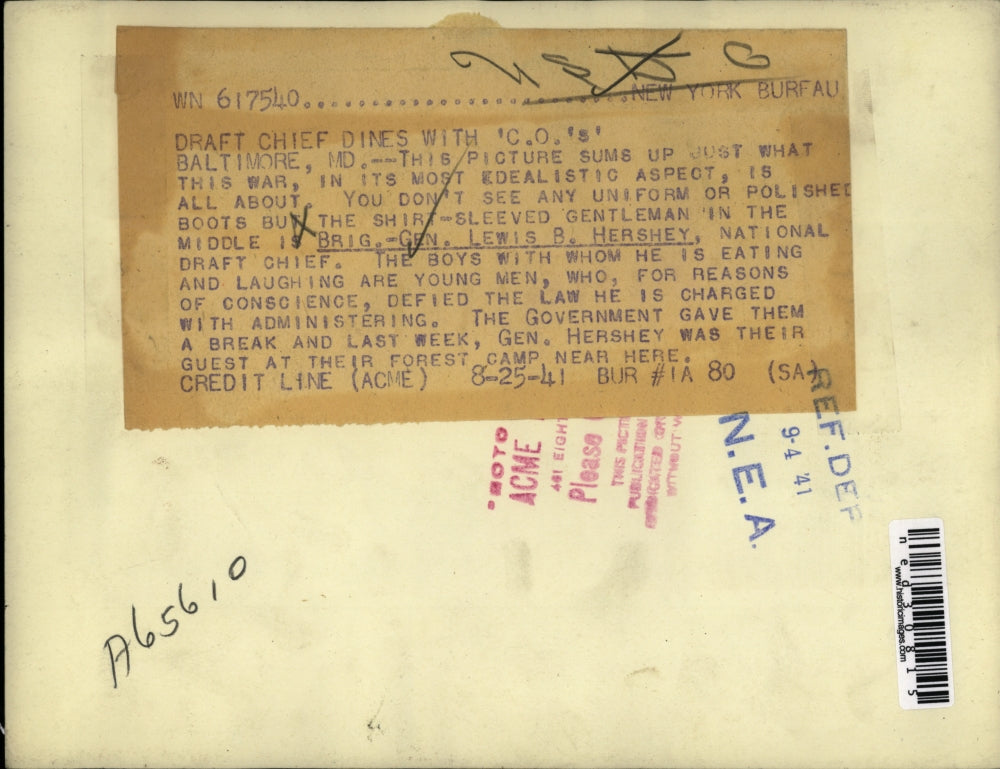 WN 617540..............................NEW YORK BUREAU
DRAFT CHIEF DINES WITH 'C.O.'s'
BALTIMORE, MD.--THIS PICTURE SUMS UP JUST WHAT
THIS WAR, IN ITS MOST EDEALISTIC ASPECT, IS
ALL ABOUT. YOU DON'T SEE ANY UNIFORM OR POLISHED
BOOTS BUT THE SHIRT-SLEEVED GENTLEMAN IN THE
MIDDLE IS BRIG.-GEN. LEWIS B. HERSHEY, NATIONAL
DRAFT CHIEF. THE BOYS WITH WHOM HE IS EATING
AND LAUGHING ARE YOUNG MEN, WHO, FOR REASONS
OF CONSCIENCE, DEFIED THE LAW HE IS CHARGED
WITH ADMINISTERING. THE GOVERNMENT GAVE THEM
A BREAK AND LAST WEEK, GEN. HERSHEY WAS THEIR
GUEST AT THEIR FOREST CAMP NEAR HERE.
CREDIT LINE (ACME) 8-25-41 BUR #1A 80 (SA)
PHOTO
ACME
461 EIGH
Please
THIS PICT
PUBLICATION
SYNDICATED OR
WITHOUT W
N.E.A.
9-4 '41
REF. DEP
A65610
ned30815
www.historicimages.com